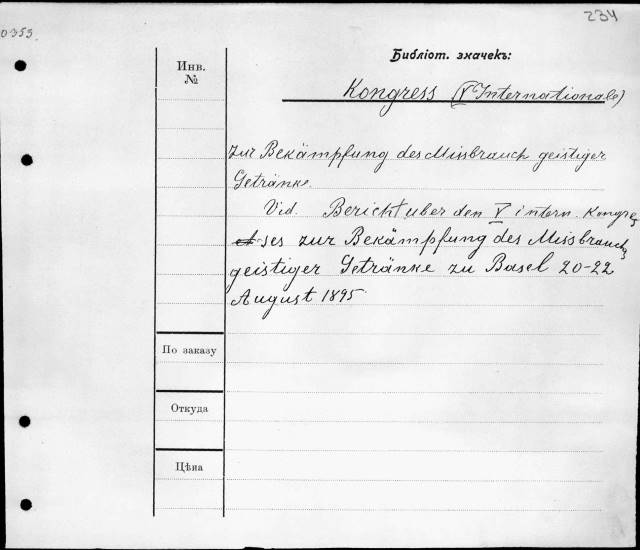 234
0353
Библіот. значекъ:
Инв.
№
Kongress (V Internationale)
Zur Bekämpfung des Missbrauch geistiger
Getränke.
Vid. Bericht über den V intern. Kongre
ses zur Bekämpfung des Missbrauch
geistiger Getränke zu Basel 20-22
August 1895
По заказу
Откуда
Цѣна